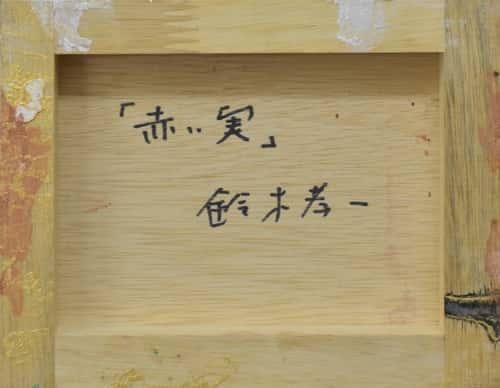 「赤い実」
鈴木孝一